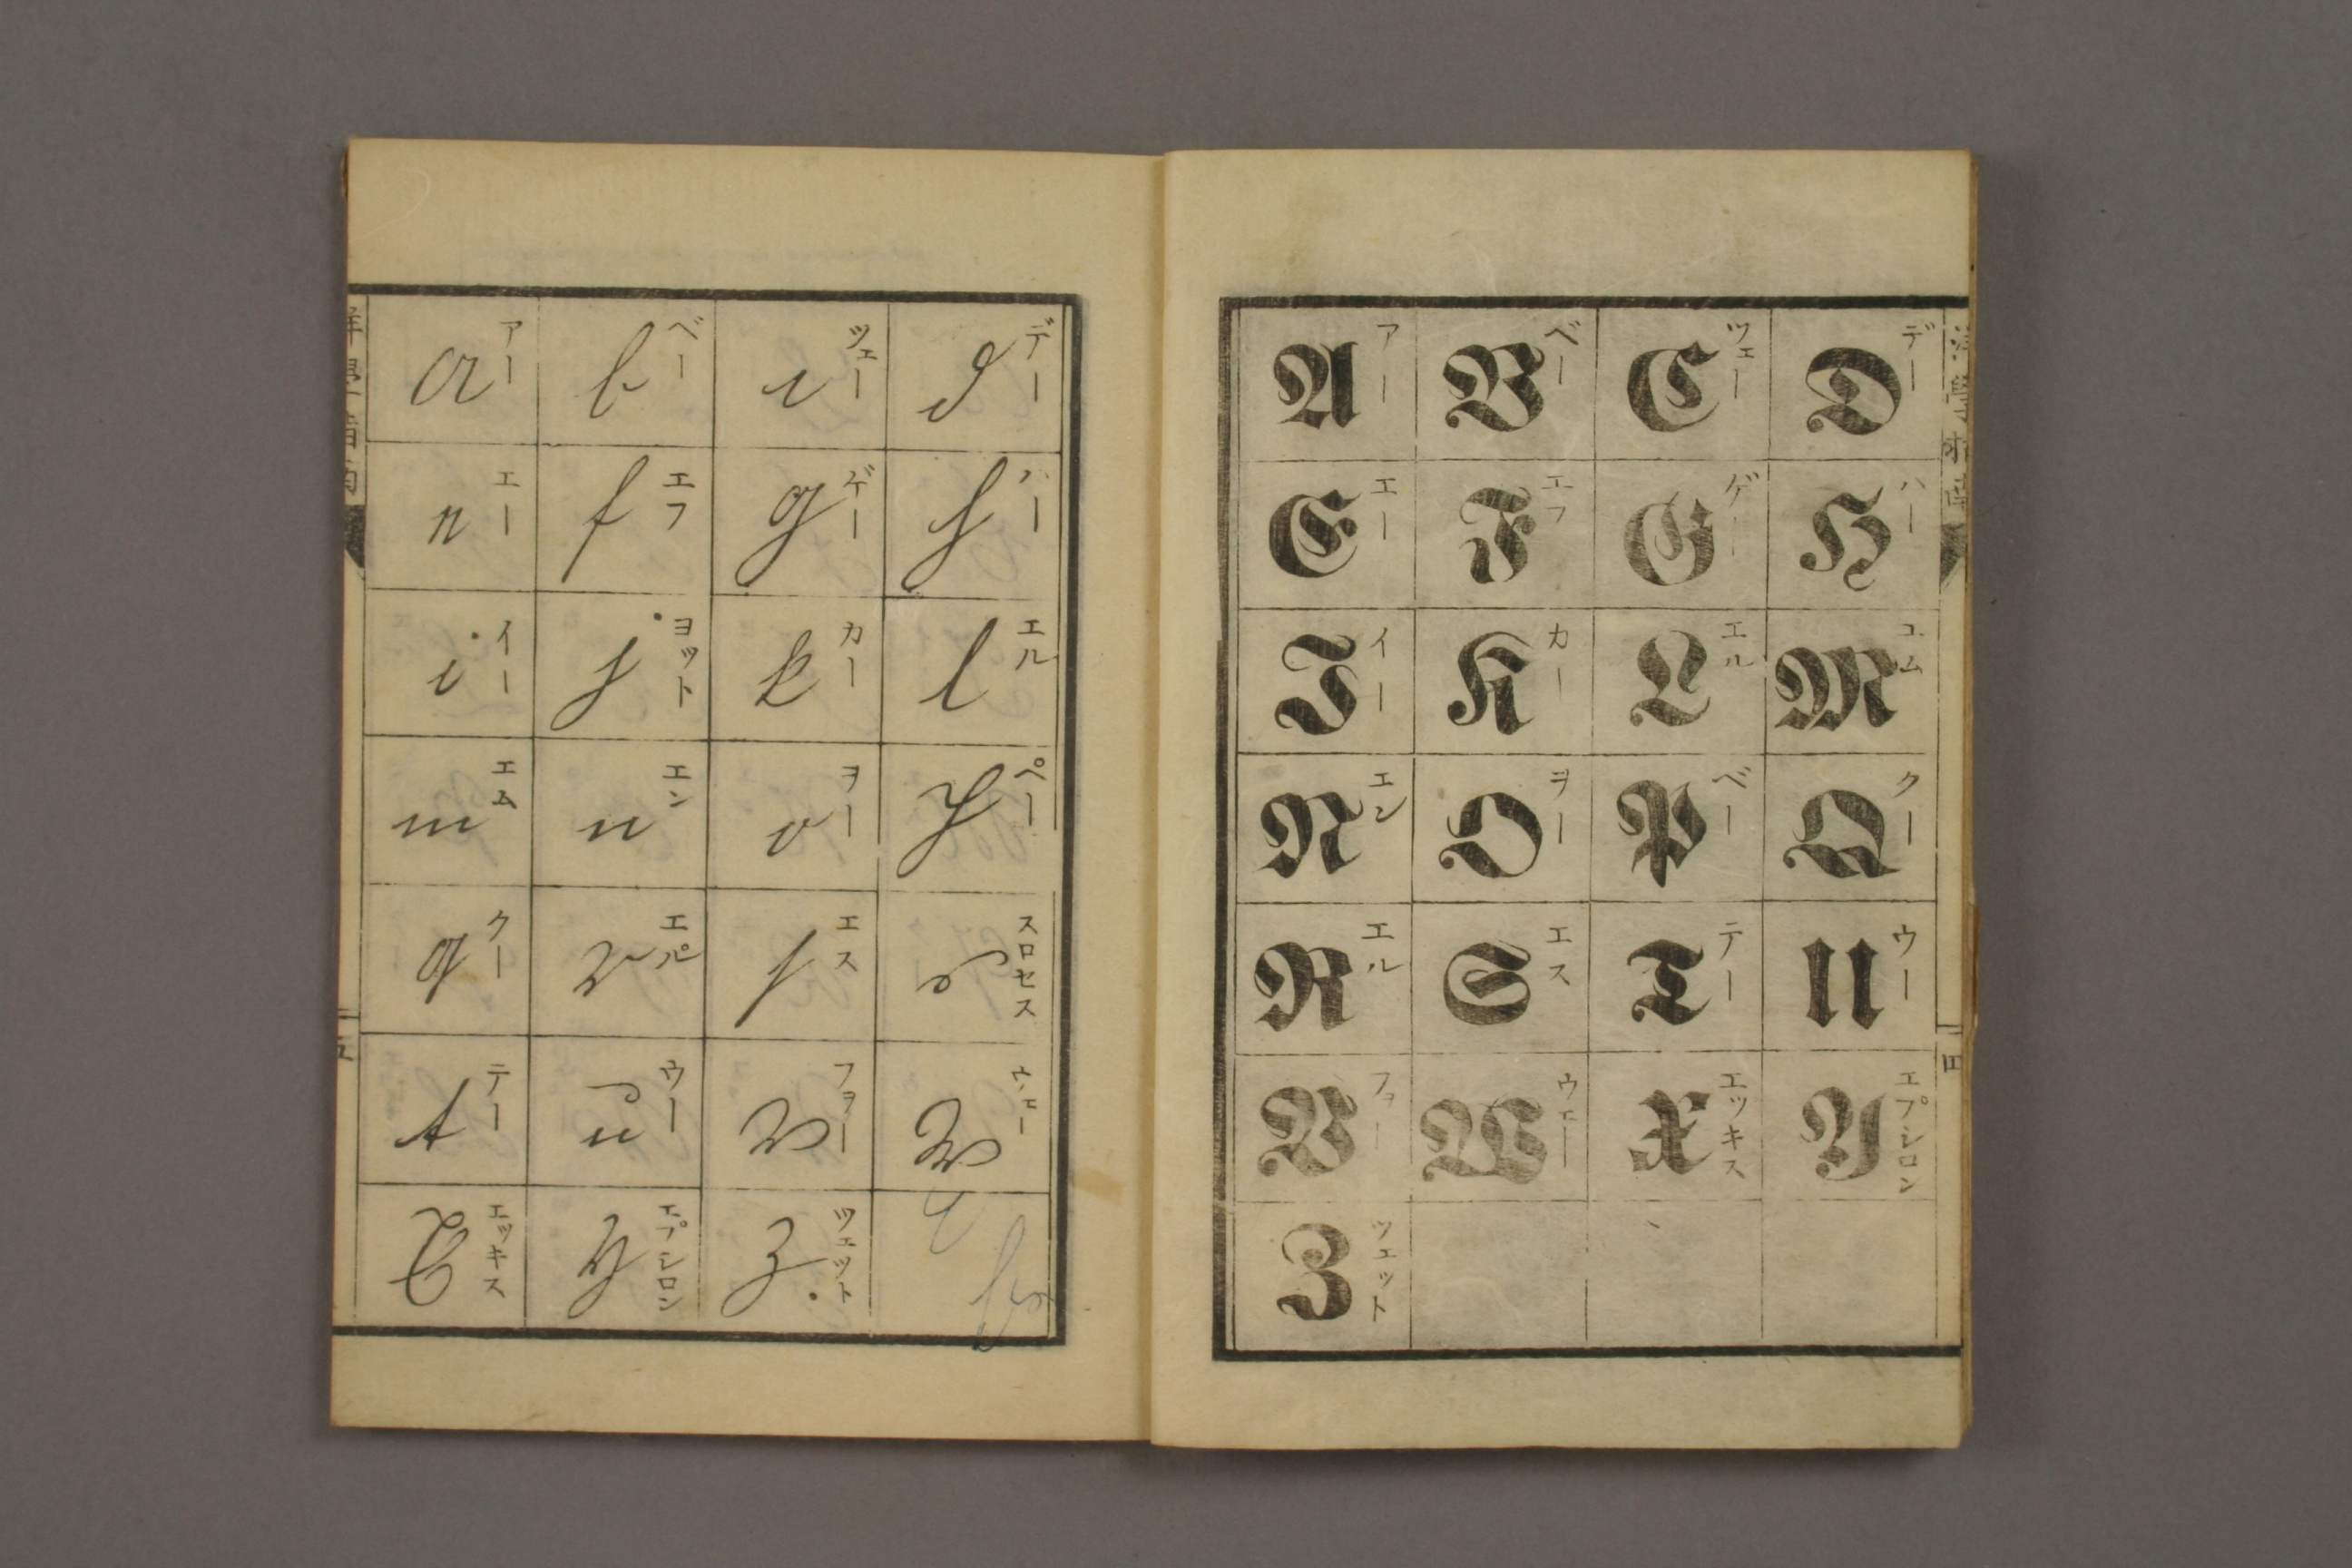 洋學指南
𝔄 アー 𝔅 ベー ℭ ツェー 𝔇 デー
𝔈 エー 𝔉 エフ 𝔊 ゲー ℌ ハー
𝔍 イー 𝔎 カー 𝔏 エル 𝔐 エム
𝔑 エン 𝔒 ヲー 𝔓 ペー 𝔔 クー
ℜ エル 𝔖 エス 𝔗 テー 𝔘 ウー
𝔙 フヲー 𝔚 ウェー 𝔛 エッキス 𝔜 エプシロン
ℨ ツェット
二四
洋學指南
a アー b ベー c ツェー d デー
e エー f エフ g ゲー h ハー
i イー j ヨット k カー l エル
m エム n エン o ヲー p ペー
q クー r エル s エス s スロセス
t テー u ウー v フヲー w ウェー
x エッキス y エプシロン z ツェット
二五